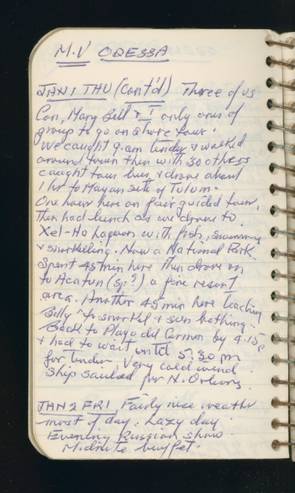 M.V ODESSA
JAN 1 THU (Cont'd) Three of us
Con, Mary Bell & I only ones of
group to go on shore tour.
We caught 9 am tender & walked
around town then with 30 others
caught tour bus & drove about
1 hr to Mayan site of Tulum.
One hour here on fair guided tour,
then had lunch as we drove to
Xel-Ho Lagoon with fish, swimming
& snorkeling. Now a National Park
Spent 45 min here then drove on
to Acatun (sp?) a fine resort
area. Another 45 min here teaching
Billy to snorkel & sun bathing.
Back to Playa del Carmen by 4:15 p
& had to wait until 5:30 pm
for tender. Very cold wind
Ship sailed for N. Orleans.
JAN 2 FRI Fairly nice weather
most of day. Lazy day.
Evening Russian show.
Midnite buffet.